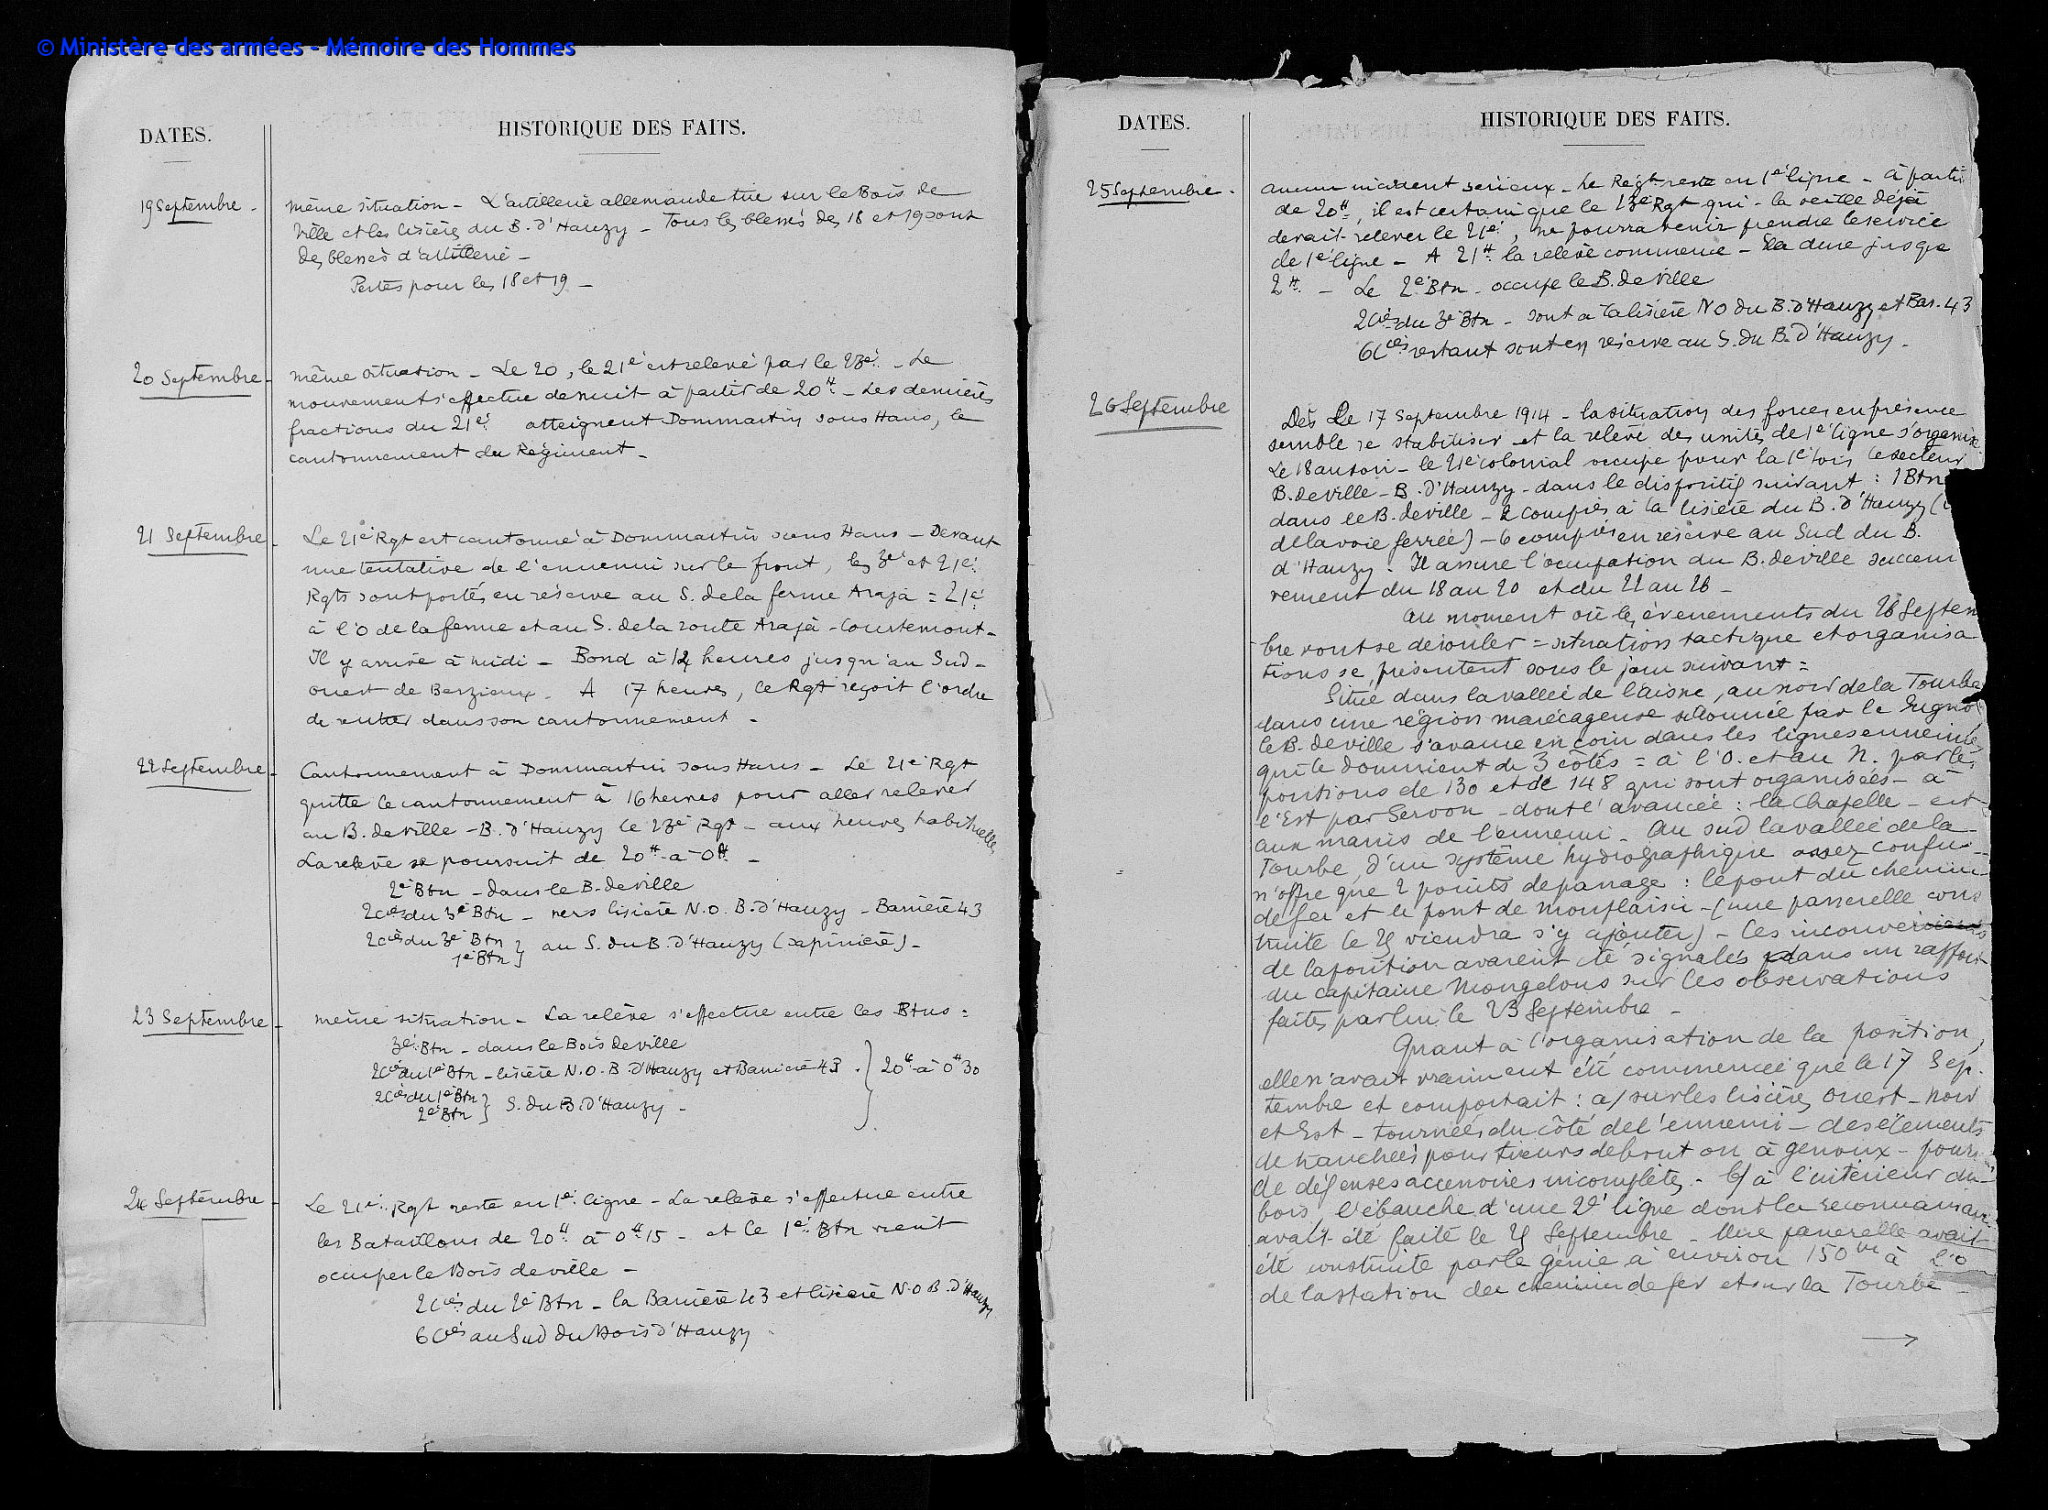 © Ministère des armées - Mémoire des Hommes
DATES.
HISTORIQUE DES FAITS.
19 Septembre -
même situation - L'artillerie allemande tire sur le Bois de
Ville et les lisières du B. d'Hauzy - Tous les blessés des 18 et 19 sont
des blessés d'artillerie -
Pertes pour les 18 et 19 -
20 Septembre -
même situation - Le 20, le 21e est relevé par le 23e - Le
mouvement s'effectue de nuit à partir de 20H - Les dernières
fractions du 21e atteignent Dommartin sous Hans, le
cantonnement du Régiment -
21 Septembre -
Le 21e Rgt est cantonné à Dommartin sous Hans - Devant
une tentative de l'ennemi sur le front, les 3e et 21e
Rgts sont portés en réserve au S. de la ferme Araja = 21e
à l'O de la ferme et au S. de la route Araja - Courtemont -
Il y arrive à midi - Bond à 14 heures jusqu'au Sud-
ouest de Berzieux. A 17 heures, le Rgt reçoit l'ordre
de rentrer dans son cantonnement -
22 Septembre -
Cantonnement à Dommartin sous Hans - Le 21e Rgt
quitte le cantonnement à 16 heures pour aller relever
au B. de Ville - B. d'Hauzy le 23e Rgt - aux heures habituelles
La relève se poursuit de 20H à 0H -
2e Btn - dans le B. de Ville
2 Cies du 3e Btn - vers lisière N.O. B. d'Hauzy - Barrière 43
2 Cies du 3e Btn
1e Btn } au S. du B. d'Hauzy (sapinière) -
23 Septembre -
même situation - La relève s'effectue entre les Btns =
3e Btn - dans le Bois de Ville
2 Cies du 1e Btn - lisière N.O. B. d'Hauzy et Barrière 43 } 20H à 0H30
2 Cies du 1e Btn
2e Btn } S. du B. d'Hauzy -
24 Septembre -
Le 21e Rgt reste en 1e ligne - La relève s'effectue entre
les Bataillons de 20H à 0H15 - et le 1e Btn vient
occuper le Bois de Ville -
2 Cies du 2e Btn - la Barrière 43 et lisière N.O B. d'Hauzy
6 Cies au Sud du Bois d'Hauzy.
DATES.
HISTORIQUE DES FAITS.
25 Septembre -
aucun incident sérieux - Le Régt reste en 1e ligne - à partir
de 20H, il est certain que le 23e Rgt qui - la veille déjà
devait relever le 21e, ne pourra venir prendre le service
de 1e ligne - A 21H la relève commence - Ela dure jusque
2H - Le 2e Btn - occupe le B. de Ville
2 Cies du 3e Btn - sont à la lisière NO du B. d'Hauzy et Bar. 43
6 Cies restant sont en réserve au S. du B. d'Hauzy -
26 Septembre
Dès Le 17 Septembre 1914 - la situation des forces en présence
semble se stabiliser et la relève des unités de 1e ligne s'organise
Le 18 au soir - le 21e colonial occupe pour la 1e fois le secteur
B. de Ville - B. d'Hauzy - dans le dispositif suivant : 1 Btn
dans le B. de Ville - 2 compies à la lisière du B. d'Hauzy (
de la voie ferrée) - 6 compies en réserve au Sud du B.
d'Hauzy. Il assure l'occupation du B. de Ville succes
vement du 18 au 20 et du 22 au 26 -
Au moment où les évènements du 26 Septem
bre vont se dérouler = situation tactique et organisa
tions se présentent sous le jour suivant =
Situé dans la vallée de l'Aisne, au nord de la Tourbe
dans une région marécageuse
le B. de Ville s'avance en coin dans les lignes ennemies
qui le dominent de 3 côtés = à l'O. et au N. par les
positions de 130 et de 148 qui sont organisées - à
l'Est par Servon - dont l'avancée : la Chapelle - est
aux mains de l'ennemi - Au sud la vallée de la
Tourbe, d'un système hydrographique assez confus -
n'offre que 2 points de passage : le pont du chemin
de fer et le pont de Montplaisir - (une passerelle cons
truite le 25 viendra s'y ajouter) - Ces inconvénients
de la position avaient été signalés dans un rapport
du capitaine Mongelous sur les observations
faites par lui le 23 Septembre -
Quant à l'organisation de la position,
elle n'avait vraiment été commencée que le 17 Sep-
tembre et comportait : a/ sur les lisières Ouest - Nord
et Est - tournées du côté de l'ennemi - des éléments
de tranchées pour tireurs debout ou à genoux -
de défenses accessoires incomplètes - b/ à l'intérieur du
bois l'ébauche d'une 2e ligne dont la reconnaissance
avait été faite le 25 Septembre - Une passerelle avait
été construite par le génie à environ 150m à l'O
de la station du chemin de fer et sur la Tourbe -
→